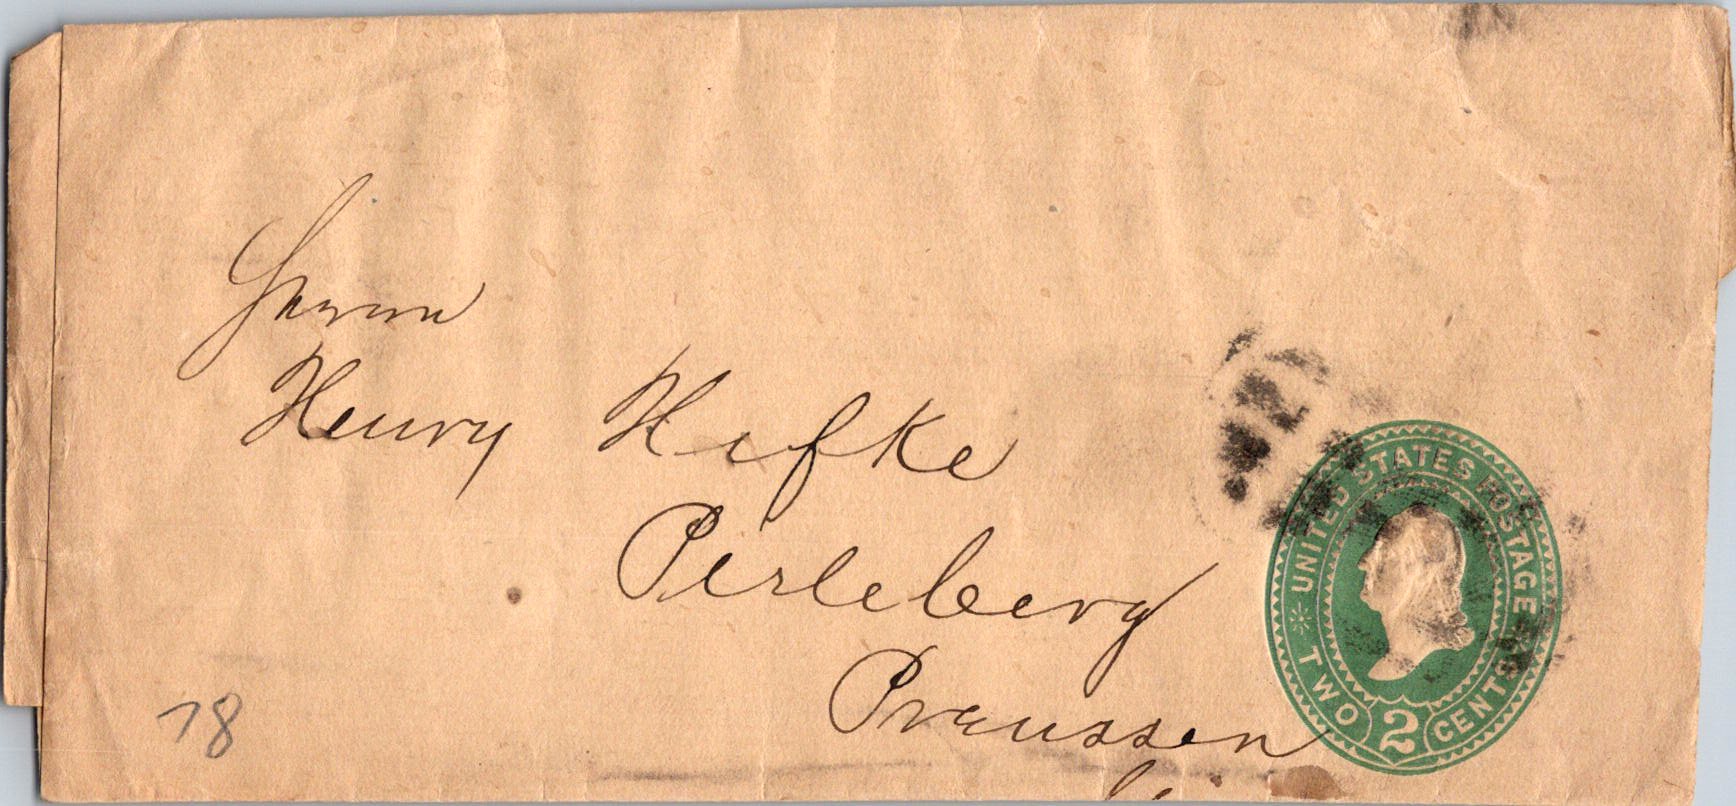 Herrn
Henry Hefke
Perleberg
Preussen
78
UNITED STATES POSTAGE
TWO 2 CENTS